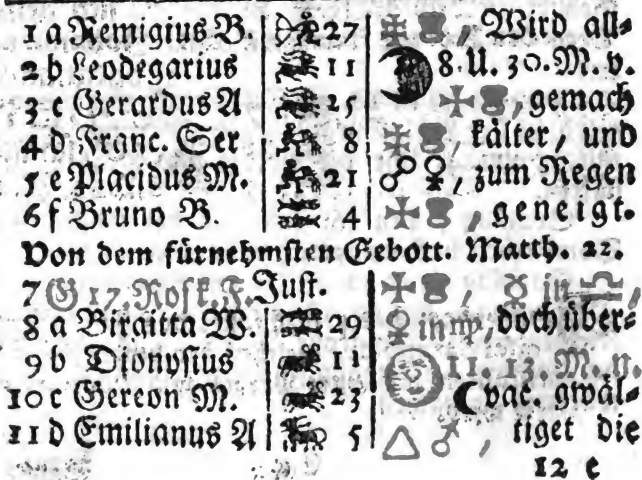 1 a Remigius B. 27 Wird all⸗
2 b Leodegarius 11 8. U. 30. M. v.
3 c Gerardus A 25 , gemach
4 d Franc. Ser 8 , kälter / und
5 e Placidus M. 21 ☍ ♀ , zum Regen
6 f Bruno B. 4 , geneigt.
Von dem fürnehmsten Gebott. Matth. 22.
7 G 17. Just. , ☿ in ♎ ,
8 a Birgitta W. 29 ♀ in ♍, doch über⸗
9 b Dionysius 11 11. 13. M. n.
10 c Gereon M. 23 ☾ vac. gwäl⸗
11 d Emilianus A 5 △ ♂ , tiget die
12 e